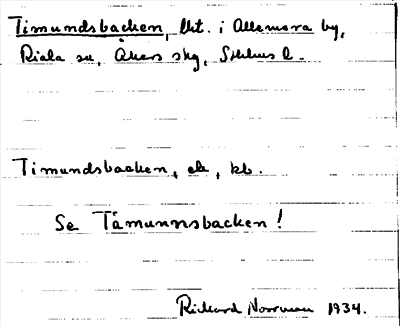 Timundsbacken, lht. i Allemora by,
Riala sn, Åkers skg, Sthlms l.
Timundsbacken, ek, kb.
Se Tåmunnsbacken!
Richard Norrman 1934.